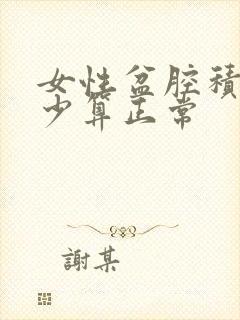 女性盆腔積
少算正常
謝某